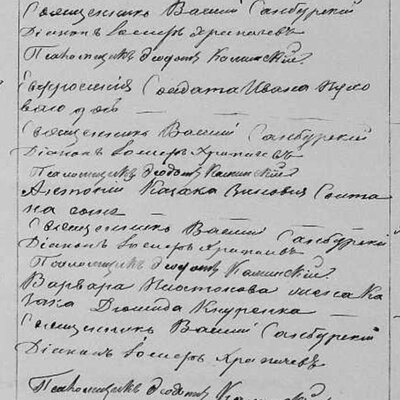 Священникъ Василий Самбурский
Діаконъ Іосифъ Храпачевъ
Псаломщикъ Ѳеодотъ Калинский
Евфросинія Солдата Ивана
Священникъ Василий Самбурский
Діаконъ Іосифъ Храпачевъ
Псаломщикъ Ѳеодотъ Калинский
Козака Зиновія
на сынъ
Священникъ Василий Самбурский
Діаконъ Іосифъ Храпачевъ
Псаломщикъ Ѳеодотъ Калинский
Варвара жена Ка
зака Діомида
Священникъ Василий Самбурский
Діаконъ Іосифъ Храпачевъ
Псаломщикъ Ѳеодотъ